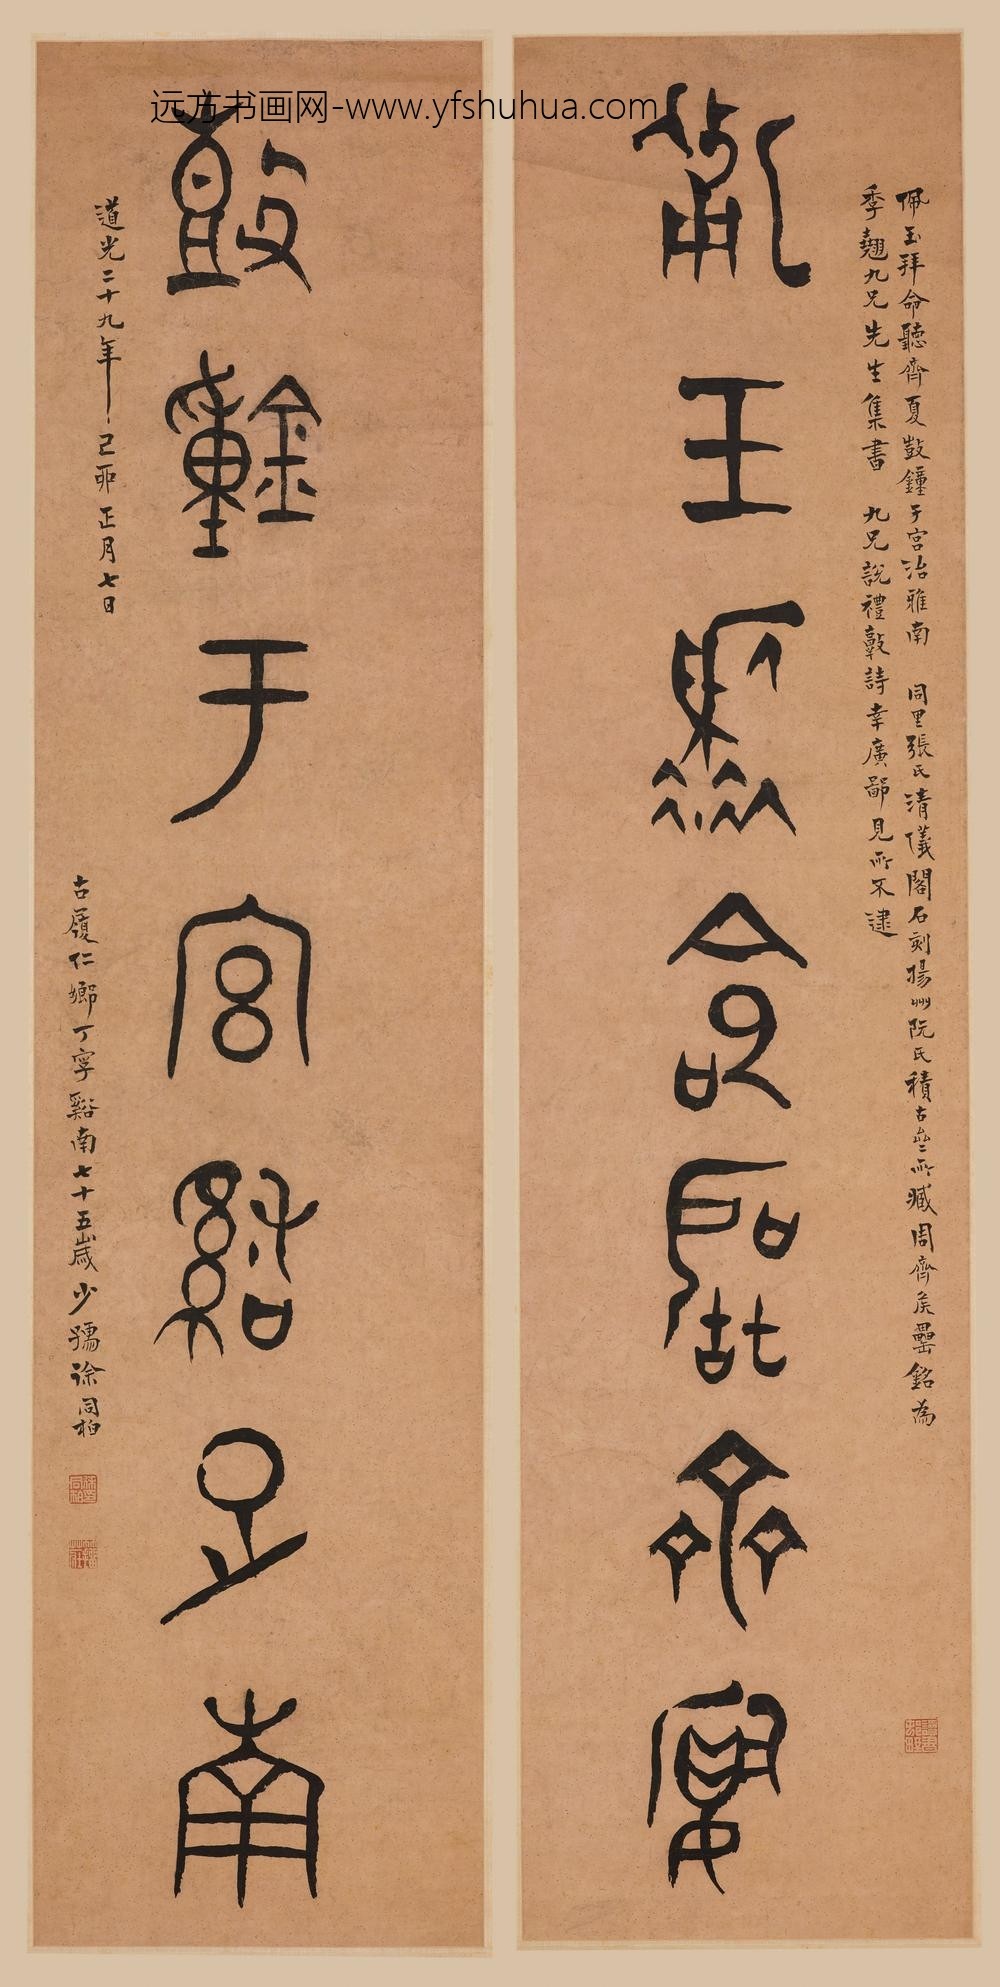 远方书画网-www.yfshuhua.com
佩玉拜命聽齊夏
佩玉拜命聽齊夏鼓鐘于宮治雅南 同里張氏清儀閣石刻揚州阮氏積古齋所臧周齊矦罍銘為
季翹九兄先生集書 九兄說禮敦詩幸廣鄙見所不逮
鼓鐘于宮治雅南
道光二十九年己丣正月七日
古履仁鄉丁寧谿南七十五歲少孺徐同柏